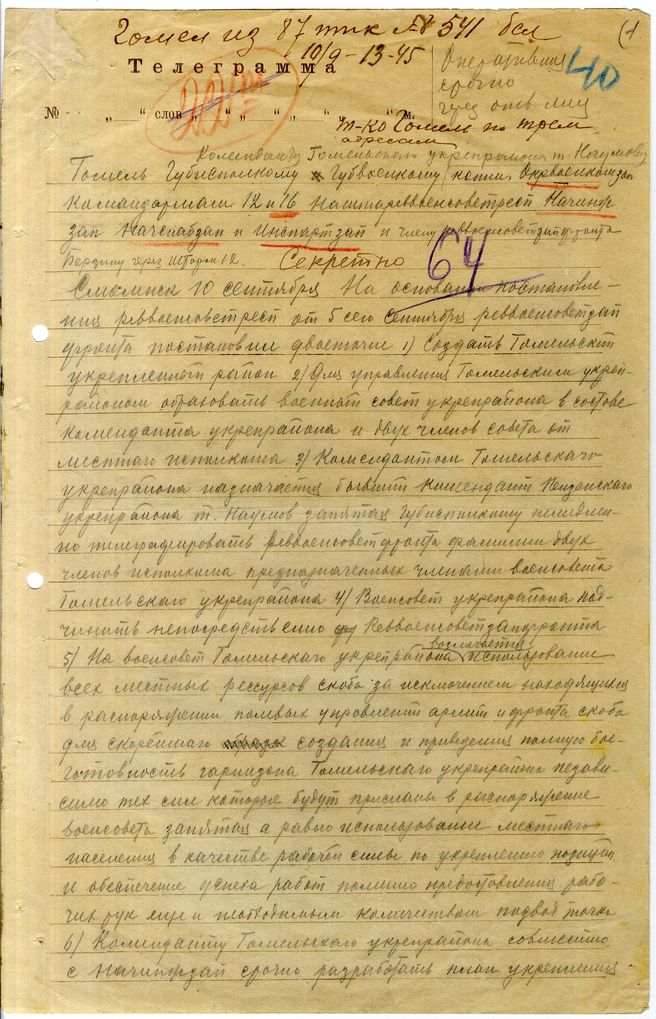 Гомел из 87 птк № 541 бсл (1
10/9 - 13-45
Телеграмма
Оперативная 40
срочно
№ „ “ слов „ “ „ “ м.
т-ко Гомель по трем
адресам
Коменданту Гомельского укрепрайона т. Наумову
Гомель Губисполкому Губвоенкому копии Окрвоенкомзап
Командармам 12 и 16 Наштареввоенсоветресп Начинж
зап Начснабзап и Инспартзап и члену Реввоенсоветзапфронта
Берзину через Штарм 12. Секретно 64
Смоленск 10 сентября На основании постановле-
ния реввоенсоветресп от 5 сего сентября реввоенсоветзап
фронта постановил двоеточие 1) Создать Гомельский
укрепленный район 2) Для управления Гомельским укреп-
районом образовать военный совет укрепрайона в составе
коменданта укрепрайона и двух членов совета от
местного исполкома 3) Комендантом Гомельского
укрепрайона назначается бывший комендант Пензенского
укрепрайона т. Наумов запятая Губисполкому немедлен-
но телеграфировать Реввоенсоветфронта фамилии двух
членов исполкома предназначенных членами военсовета
Гомельского укрепрайона 4) Военсовет укрепрайона под-
чинить непосредственно Реввоенсоветзапфронта
возлагается
5) На военсовет Гомельского укрепрайона использование
всех местных рессурсов скоба за исключением находящихся
в распоряжении полевых управлений армий и фронта скоба
для скорейшего создания и приведения полную бое-
готовность гарнизона Гомельского укрепрайона незави-
симо тех сил которые будут присланы в распоряжение
военсовета запятая а равно использование местного
населения в качестве рабочей силы по укреплению позиций
и обеспечение успеха работ помимо предоставления рабо-
чих рук еще и необходимым количеством подвод точка
6) Коменданту Гомельского укрепрайона совместно
с Начинжзап срочно разработать план укрепления